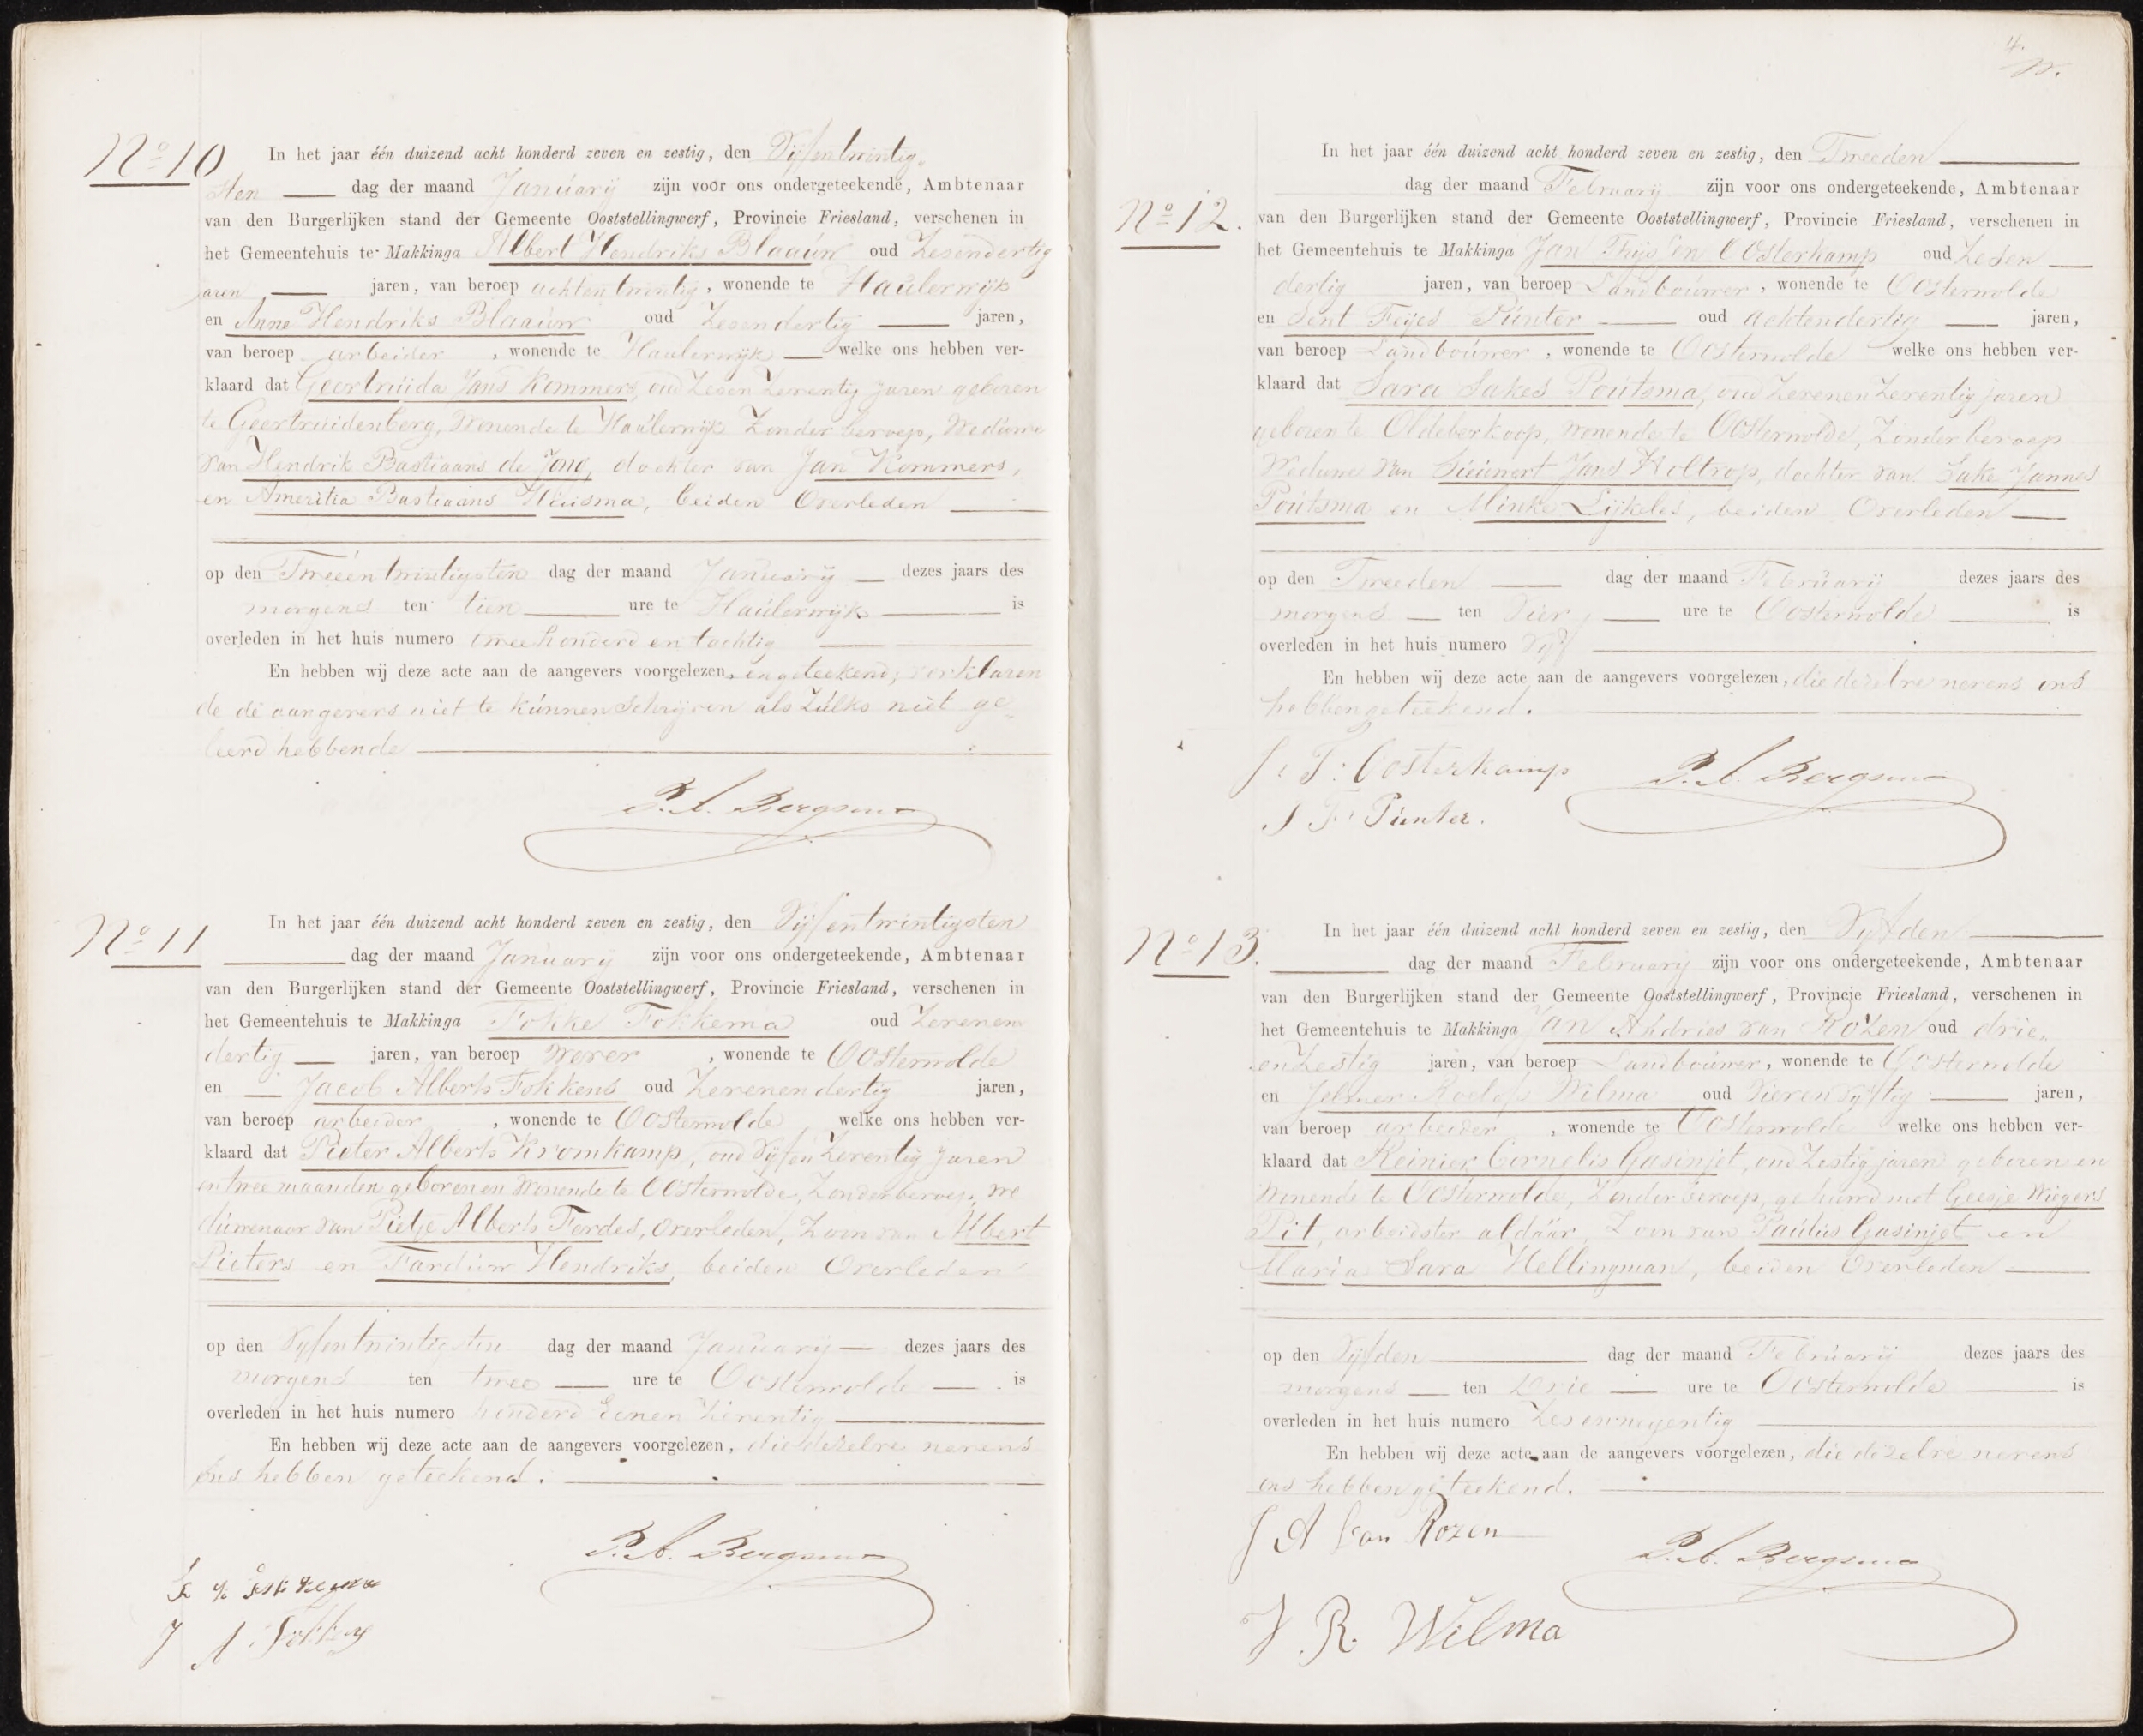 No 10
In het jaar één duizend acht honderd zeven en zestig, den Vijfentwintig„
sten dag der maand Januarij zijn voor ons ondergeteekende, Ambtenaar
van den Burgerlijken stand der Gemeente Ooststellingwerf, Provincie Friesland, verschenen in
het Gemeentehuis te Makkinga Albert Hendriks Blaauw oud Zesendertig
jaren jaren, van beroep achtentwintig, wonende te Haulerwijk
en Anne Hendriks Blaauw oud Zesendertig jaren,
van beroep arbeider, wonende te Haulerwijk welke ons hebben ver-
klaard dat Geertruida Jans Kommers, oud Zesen Zeventig jaren geboren
te Geertruidenberg, Wonende te Haulerwijk Zonder beroep, Weduwe
van Hendrik Bastiaans de Jong, dochter van Jan Kommers,
en Ameritia Bastiaans Huisma, beiden Overleden
op den Tweeentwintigsten dag der maand Januarij dezes jaars des
morgens ten tien ure te Haulerwijk is
overleden in het huis numero twee honderd en tachtig
En hebben wij deze acte aan de aangevers voorgelezen, en geteekend, verklaren
de de aangevers niet te kunnen Schrijven als Zulks niet ge„
leerd hebbende
P. A. Bergsma
No 11
In het jaar één duizend acht honderd zeven en zestig, den Vijfentwintigsten
dag der maand Januarij zijn voor ons ondergeteekende, Ambtenaar
van den Burgerlijken stand der Gemeente Ooststellingwerf, Provincie Friesland, verschenen in
het Gemeentehuis te Makkinga Fokke Fokkema oud Zevenen
dertig jaren, van beroep Wever, wonende te Oosterwolde
en Jacob Alberts Fokkens oud Zevenendertig jaren,
van beroep arbeider, wonende te Oosterwolde welke ons hebben ver-
klaard dat Pieter Alberts Kromkamp, oud Vijfen Zeventig jaren
en twee maanden geboren en Wonende te Oosterwolde, Zonder beroep, We
duwenaar van Pietje Alberts Ferdes, Overleden, Zoon van Albert
Pieters en Farduw Hendriks, beiden Overleden
op den Vijfentwintigsten dag der maand Januarij dezes jaars des
morgens ten twee ure te Oosterwolde is
overleden in het huis numero honderd Eenen Zeventig
En hebben wij deze acte aan de aangevers voorgelezen, die dezelve nevens
Ons hebben geteekend.
P. A. Bergsma
J A Fokkens
4.
No 12.
In het jaar één duizend acht honderd zeven en zestig, den Tweeden
dag der maand Februarij zijn voor ons ondergeteekende, Ambtenaar
van den Burgerlijken stand der Gemeente Ooststellingwerf, Provincie Friesland, verschenen in
het Gemeentehuis te Makkinga Jan Thijssen Oosterkamp oud Zesen
dertig jaren, van beroep Landbouwer, wonende te Oosterwolde
en Sent Feijes Punter oud achtendertig jaren,
van beroep Landbouwer, wonende te Oosterwolde welke ons hebben ver-
klaard dat Sara Sakes Poutsma, oud Zevenen Zeventig jaren
geboren te Oldeberkoop, Wonende te Oosterwolde, Zonder beroep
Weduwe van Sieuwert Jans Holtrop, dochter van Sake Jannes
Poutsma en Minke Lijkeles, beiden Overleden
op den Tweeden dag der maand Februarij dezes jaars des
morgens ten Vier ure te Oosterwolde is
overleden in het huis numero Vijf
En hebben wij deze acte aan de aangevers voorgelezen, die dezelve nevens ons
hebben geteekend.
J: T: Oosterkamp P. A. Bergsma
S F: Punter.
No 13.
In het jaar één duizend acht honderd zeven en zestig, den Vijfden
dag der maand Februarij zijn voor ons ondergeteekende, Ambtenaar
van den Burgerlijken stand der Gemeente Ooststellingwerf, Provincie Friesland, verschenen in
het Gemeentehuis te Makkinga Jan Andries van Rozen oud drie„
en Zestig jaren, van beroep Landbouwer, wonende te Oosterwolde
en Jelmer Roelofs Wilma oud Vierenvijftig jaren,
van beroep arbeider, wonende te Oosterwolde welke ons hebben ver-
klaard dat Reinier Cornelis Gasinjet, oud Zestig jaren geboren en
Wonende te Oosterwolde, Zonder beroep, gehuwd met Geesje Wiegers
Pit, arbeidster aldaar, Zoon van Paulus Gasinjet en
Maria Sara Hellingman, beiden Overleden
op den Vijfden dag der maand Februarij dezes jaars des
morgens ten Drie ure te Oosterwolde is
overleden in het huis numero Zes en negentig
En hebben wij deze acte aan de aangevers voorgelezen, die dezelve nevens
ons hebben geteekend.
J A van Rozen
P. A. Bergsma
J. R. Wilma